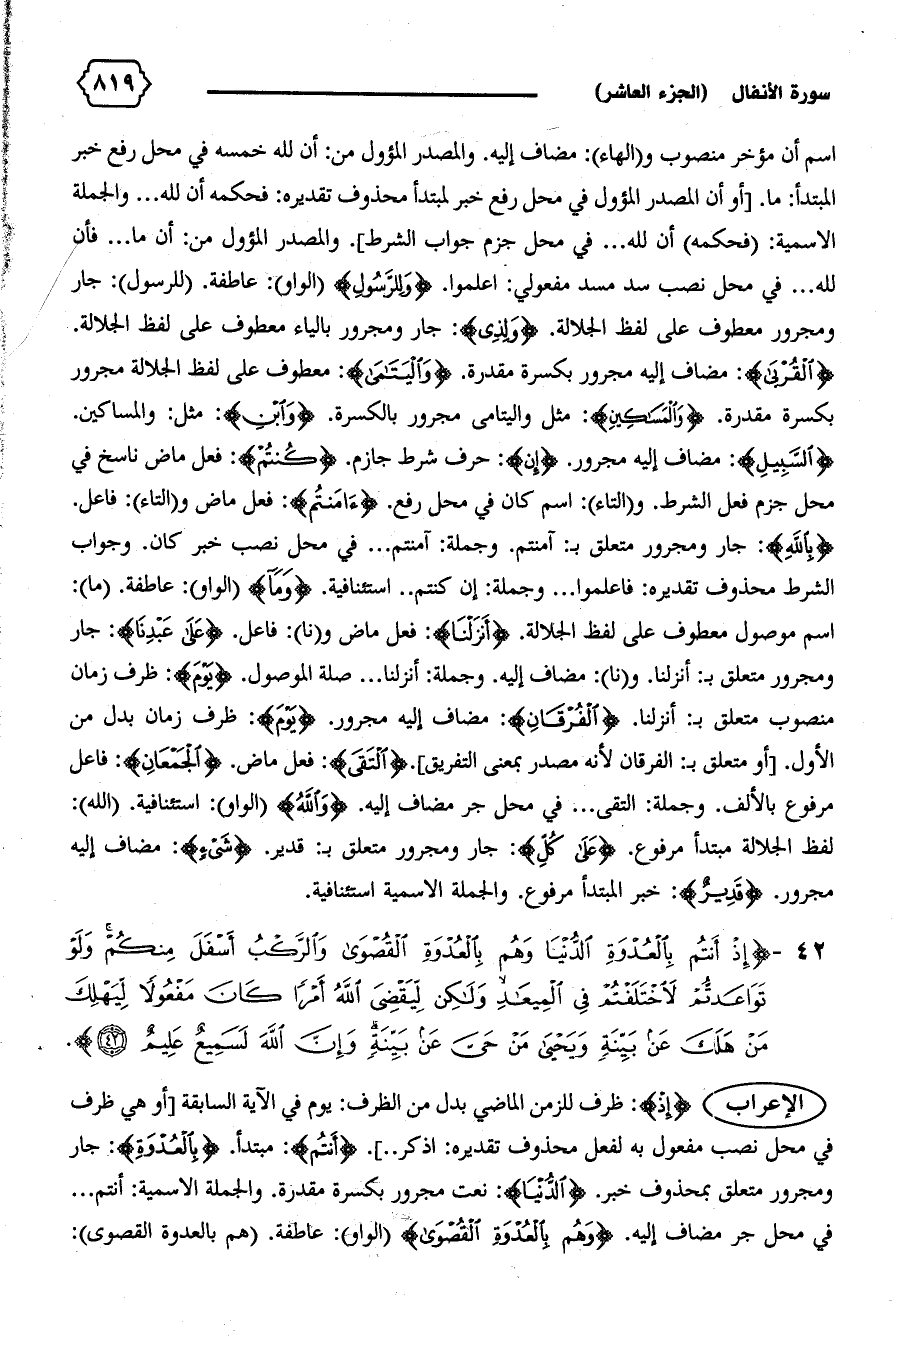 سورة الأنفال (الجزء العاشر) ٨١٩
اسم أن مؤخر منصوب و(الهاء): مضاف إليه. والمصدر المؤول من: أن لله خمسه في محل رفع خبر
المبتدأ: ما. [أو أن المصدر المؤول في محل رفع خبر لمبتدأ محذوف تقديره: فحكمه أن لله... والجملة
الاسمية: (فحكمه) أن لله... في محل جزم جواب الشرط]. والمصدر المؤول من: أن ما... فأن
لله... في محل نصب سد مسد مفعولي: اعلموا. ﴿وَلِلرَّسُولِ﴾ (الواو): عاطفة. (للرسول): جار
ومجرور معطوف على لفظ الجلالة. ﴿وَلِذِى﴾: جار ومجرور بالياء معطوف على لفظ الجلالة.
﴿ٱلْقُرْبَىٰ﴾: مضاف إليه مجرور بكسرة مقدرة. ﴿وَٱلْيَتَـٰمَىٰ﴾: معطوف على لفظ الجلالة مجرور
بكسرة مقدرة. ﴿وَٱلْمَسَـٰكِينِ﴾: مثل واليتامى مجرور بالكسرة. ﴿وَٱبْنِ﴾: مثل: والمساكين.
﴿ٱلسَّبِيلِ﴾: مضاف إليه مجرور. ﴿إِن﴾: حرف شرط جازم. ﴿كُنتُمْ﴾: فعل ماض ناسخ في
محل جزم فعل الشرط. و(التاء): اسم كان في محل رفع. ﴿ءَامَنتُم﴾: فعل ماض و(التاء): فاعل.
﴿بِٱللَّهِ﴾: جار ومجرور متعلق بـ: آمنتم. وجملة: آمنتم... في محل نصب خبر كان. وجواب
الشرط محذوف تقديره: فاعلموا... وجملة: إن كنتم.. استئنافية. ﴿وَمَآ﴾ (الواو): عاطفة. (ما):
اسم موصول معطوف على لفظ الجلالة. ﴿أَنزَلْنَا﴾: فعل ماض و(نا): فاعل. ﴿عَلَىٰ عَبْدِنَا﴾: جار
ومجرور متعلق بـ: أنزلنا. و(نا): مضاف إليه. وجملة: أنزلنا... صلة الموصول. ﴿يَوْمَ﴾: ظرف زمان
منصوب متعلق بـ: أنزلنا. ﴿ٱلْفُرْقَانِ﴾: مضاف إليه مجرور. ﴿يَوْمَ﴾: ظرف زمان بدل من
الأول. [أو متعلق بـ: الفرقان لأنه مصدر بمعنى التفريق]. ﴿ٱلْتَقَى﴾: فعل ماض. ﴿ٱلْجَمْعَانِ﴾: فاعل
مرفوع بالألف. وجملة: التقى... في محل جر مضاف إليه. ﴿وَٱللَّهُ﴾ (الواو): استئنافية. (الله):
لفظ الجلالة مبتدأ مرفوع. ﴿عَلَىٰ كُلِّ﴾: جار ومجرور متعلق بـ: قدير. ﴿شَىْءٍ﴾: مضاف إليه
مجرور. ﴿قَدِيرٌ﴾: خبر المبتدأ مرفوع. والجملة الاسمية استئنافية.
٤٢ - ﴿إِذْ أَنتُم بِٱلْعُدْوَةِ ٱلدُّنْيَا وَهُم بِٱلْعُدْوَةِ ٱلْقُصْوَىٰ وَٱلرَّكْبُ أَسْفَلَ مِنكُمْ ۚ وَلَوْ
تَوَاعَدتُّمْ لَٱخْتَلَفْتُمْ فِى ٱلْمِيعَـٰدِ ۙ وَلَـٰكِن لِّيَقْضِىَ ٱللَّهُ أَمْرًا كَانَ مَفْعُولًا لِّيَهْلِكَ
مَنْ هَلَكَ عَنۢ بَيِّنَةٍ وَيَحْيَىٰ مَنْ حَىَّ عَنۢ بَيِّنَةٍ ۗ وَإِنَّ ٱللَّهَ لَسَمِيعٌ عَلِيمٌ ٤٢﴾.
الإعراب ﴿إِذْ﴾: ظرف للزمن الماضي بدل من الظرف: يوم في الآية السابقة [أو هي ظرف
في محل نصب مفعول به لفعل محذوف تقديره: اذكر..]. ﴿أَنتُم﴾: مبتدأ. ﴿بِٱلْعُدْوَةِ﴾: جار
ومجرور متعلق بمحذوف خبر. ﴿ٱلدُّنْيَا﴾: نعت مجرور بكسرة مقدرة. والجملة الاسمية: أنتم...
في محل جر مضاف إليه. ﴿وَهُم بِٱلْعُدْوَةِ ٱلْقُصْوَىٰ﴾ (الواو): عاطفة. (هم بالعدوة القصوى):